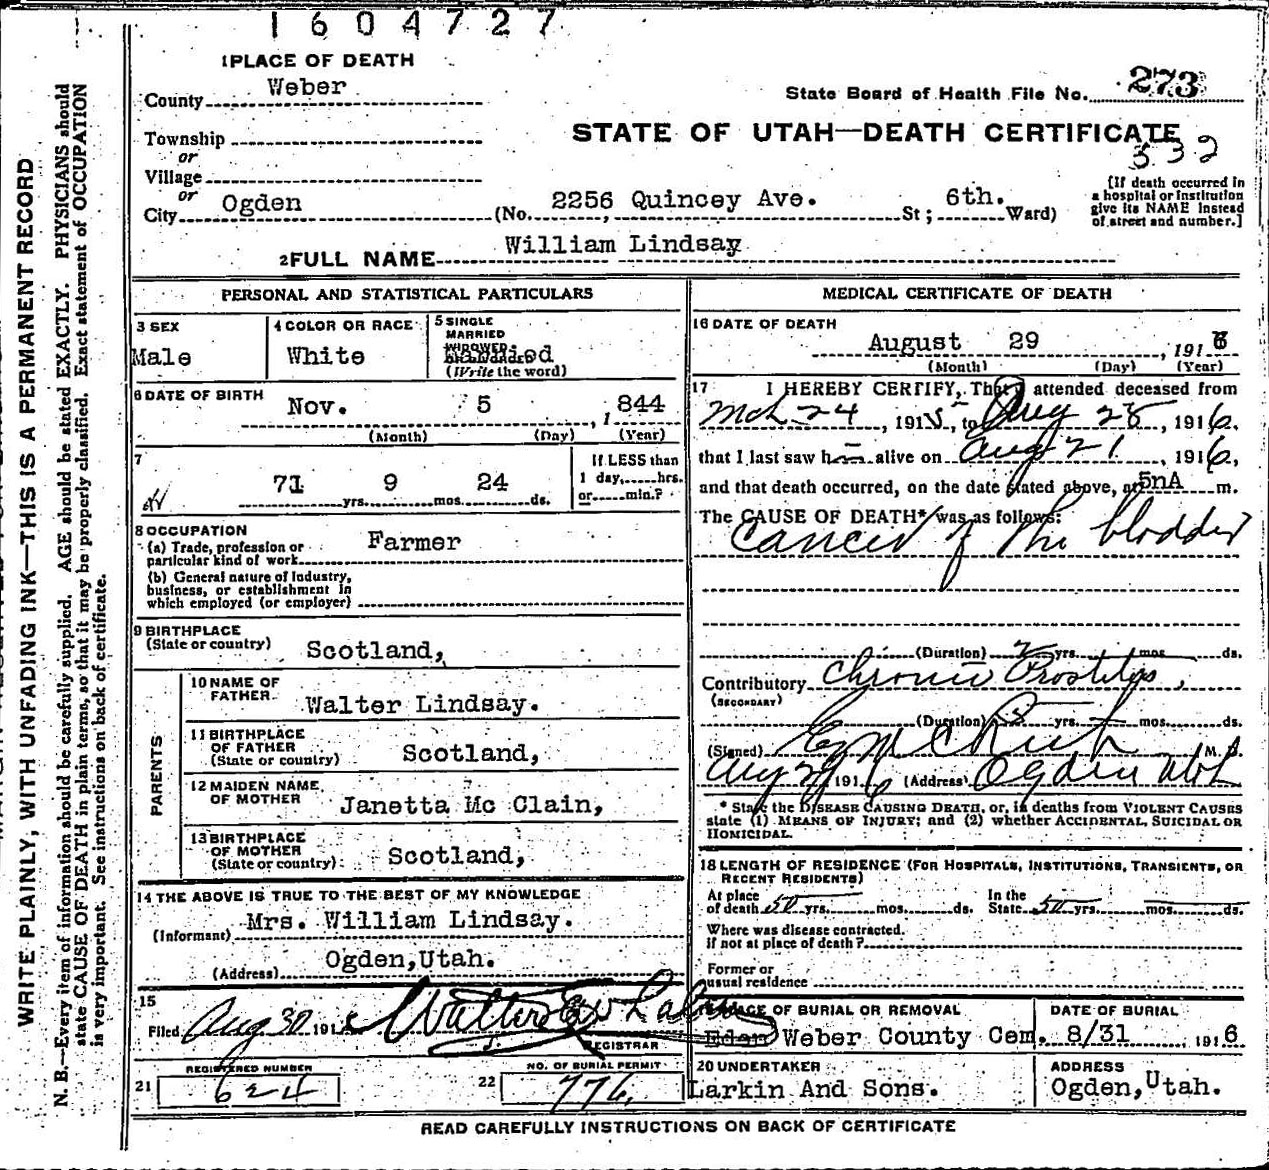 1604727
1 PLACE OF DEATH
County Weber
State Board of Health File No. 273
STATE OF UTAH—DEATH CERTIFICATE
332
Township
or
Village
or
City Ogden (No. 2256 Quincey Ave. St; 6th. Ward)
[If death occurred in
a hospital or institution
give its NAME instead
of street and number.]
2 FULL NAME William Lindsay
PERSONAL AND STATISTICAL PARTICULARS
3 SEX
Male
4 COLOR OR RACE
White
5 SINGLE
MARRIED
WIDOWED
(Write the word)
6 DATE OF BIRTH
Nov. 5, 1844
(Month) (Day) (Year)
7
71 yrs. 9 mos. 24 ds.
If LESS than
1 day, hrs.
or min.?
8 OCCUPATION
(a) Trade, profession or
particular kind of work Farmer
(b) General nature of industry,
business, or establishment in
which employed (or employer)
9 BIRTHPLACE
(State or country) Scotland,
PARENTS
10 NAME OF
FATHER Walter Lindsay.
11 BIRTHPLACE
OF FATHER
(State or country) Scotland,
12 MAIDEN NAME
OF MOTHER Janetta Mc Clain,
13 BIRTHPLACE
OF MOTHER
(State or country) Scotland,
14 THE ABOVE IS TRUE TO THE BEST OF MY KNOWLEDGE
(Informant) Mrs. William Lindsay.
(Address) Ogden,Utah.
15
Filed Aug 30 191
REGISTRAR
REGISTERED NUMBER
21 624
NO. OF BURIAL PERMIT
22 776
MEDICAL CERTIFICATE OF DEATH
16 DATE OF DEATH
August 29, 1916
(Month) (Day) (Year)
17 I HEREBY CERTIFY, That I attended deceased from
Mch 24, 1915, to Aug 28, 1916,
that I last saw h alive on Aug 21, 1916,
and that death occurred, on the date stated above, at 5 A m.
The CAUSE OF DEATH* was as follows:
Cancer of the bladder
(Duration) 2 yrs. mos. ds.
Contributory Chronic Prostitis,
(SECONDARY)
(Duration) yrs. mos. ds.
(Signed) Rich M.D.
Aug 29 1916 (Address) Ogden Utah
* State the DISEASE CAUSING DEATH, or, in deaths from VIOLENT CAUSES
state (1) MEANS OF INJURY; and (2) whether ACCIDENTAL, SUICIDAL OR
HOMICIDAL.
18 LENGTH OF RESIDENCE (FOR HOSPITALS, INSTITUTIONS, TRANSIENTS, OR
RECENT RESIDENTS)
At place
of death 50 yrs. mos. ds. In the
State 50 yrs. mos. ds.
Where was disease contracted,
if not at place of death?
Former or
usual residence
PLACE OF BURIAL OR REMOVAL
Eden Weber County Cem.
DATE OF BURIAL
8/31, 1916
20 UNDERTAKER
Larkin And Sons.
ADDRESS
Ogden,Utah.
READ CAREFULLY INSTRUCTIONS ON BACK OF CERTIFICATE
WRITE PLAINLY, WITH UNFADING INK—THIS IS A PERMANENT RECORD
N. B.—Every item of information should be carefully supplied. AGE should be stated EXACTLY. PHYSICIANS should
state CAUSE OF DEATH in plain terms, so that it may be properly classified. Exact statement of OCCUPATION
is very important. See instructions on back of certificate.